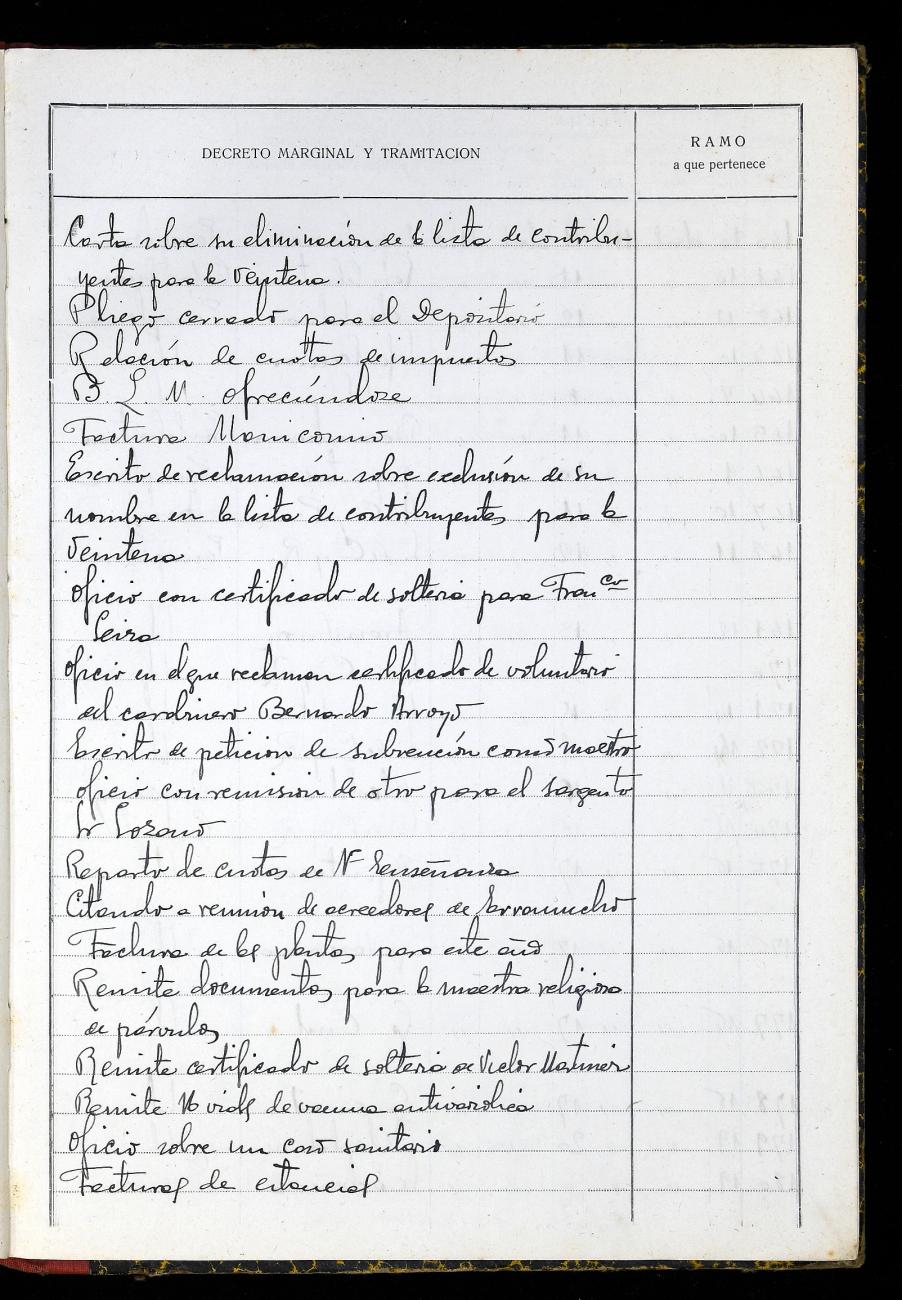 DECRETO MARGINAL Y TRAMITACION
RAMO
a que pertenece
Carta sobre su eliminación de la lista de contribu-
yentes para la Veintena.
Pliego cerrado para el Depositario
Relación de cuotas de impuestos
B. L. M. ofreciéndose
Factura Manicomio
Escrito de reclamación sobre exclusión de su
nombre en la lista de contribuyentes para la
Veintena
Oficio con certificado de solteria para Fran<sup>co</sup>
Seira
Oficio en el que reclaman certificado de voluntario
del carabinero Bernardo Arroyo
Escrito de petición de subvención como maestro
Oficio con remision de otro para el sargento
Sr Lozano
Reparto de cuotas de Nª Enseñanza
Citando a reunión de acreedores de
Factura de las plantas para este año
Remite documentos para la maestra religiosa
de párvulos
Remite certificado de solteria de Victor Martinez
Remite 16 vials de vacuna antivariolica
Oficio sobre un caso sanitario
Facturas de estancias